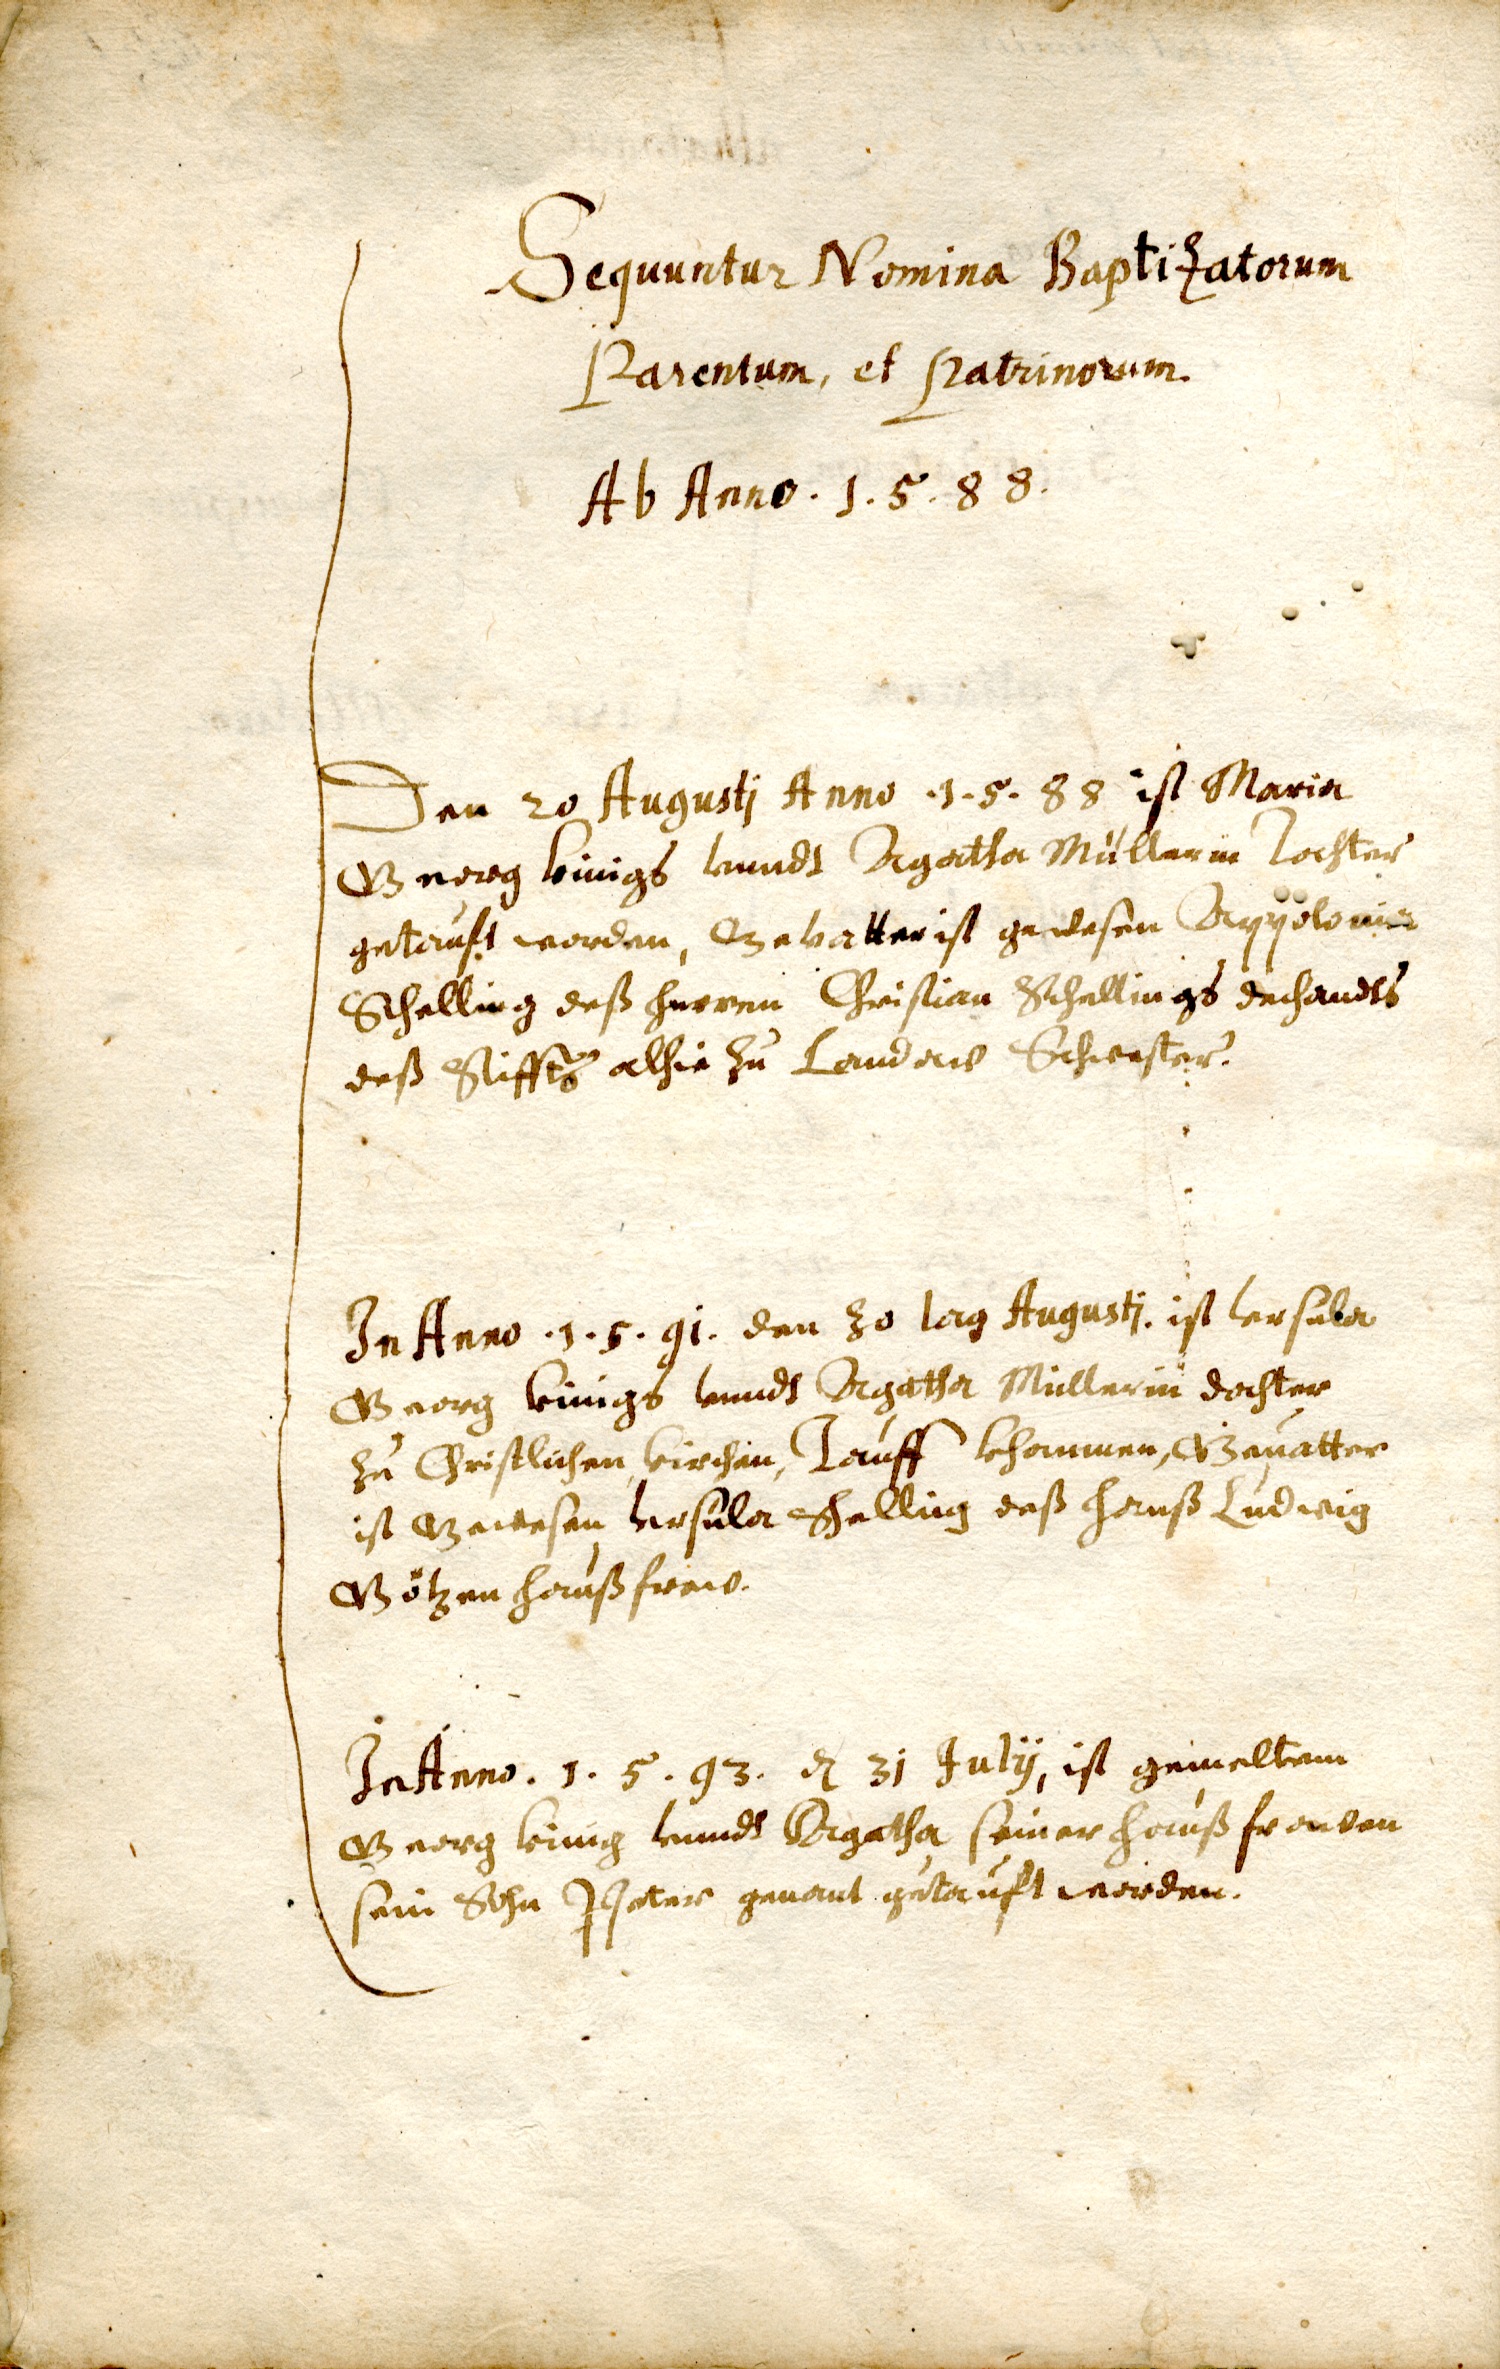 Sequuntur Nomina Baptizatorum
Parentum, et Patrinorum.
Ab Anno. 1. 5. 8 8.
Den 20 Augustj Anno .1.5. 88 ist Maria
Georg königs vnndt Agatha Müllerin Tochter
getaufft worden, Gevatter ist gewesen Appolonia
Schelling deß herren Christian Schellings dechandts
deß Stiffts alhie zu Landaw Schwester.
In Anno .1.5.91. den 30 tag Augustj. ist Vrsula
Georg königs vnndt Agatha Müllerin dochter
zu Christlichen, kirchen, Tauff khommen, Geuatter
ist Gewesen Vrsula Schelling deß hanß Ludwig
Götzen haußfraw.
In Anno. 1. 5. 93. 31 Julij, ist gemeltem
Georg könig vnndt Agatha seiner haußfrawen
sein Sohn Peter genant getaufft worden.